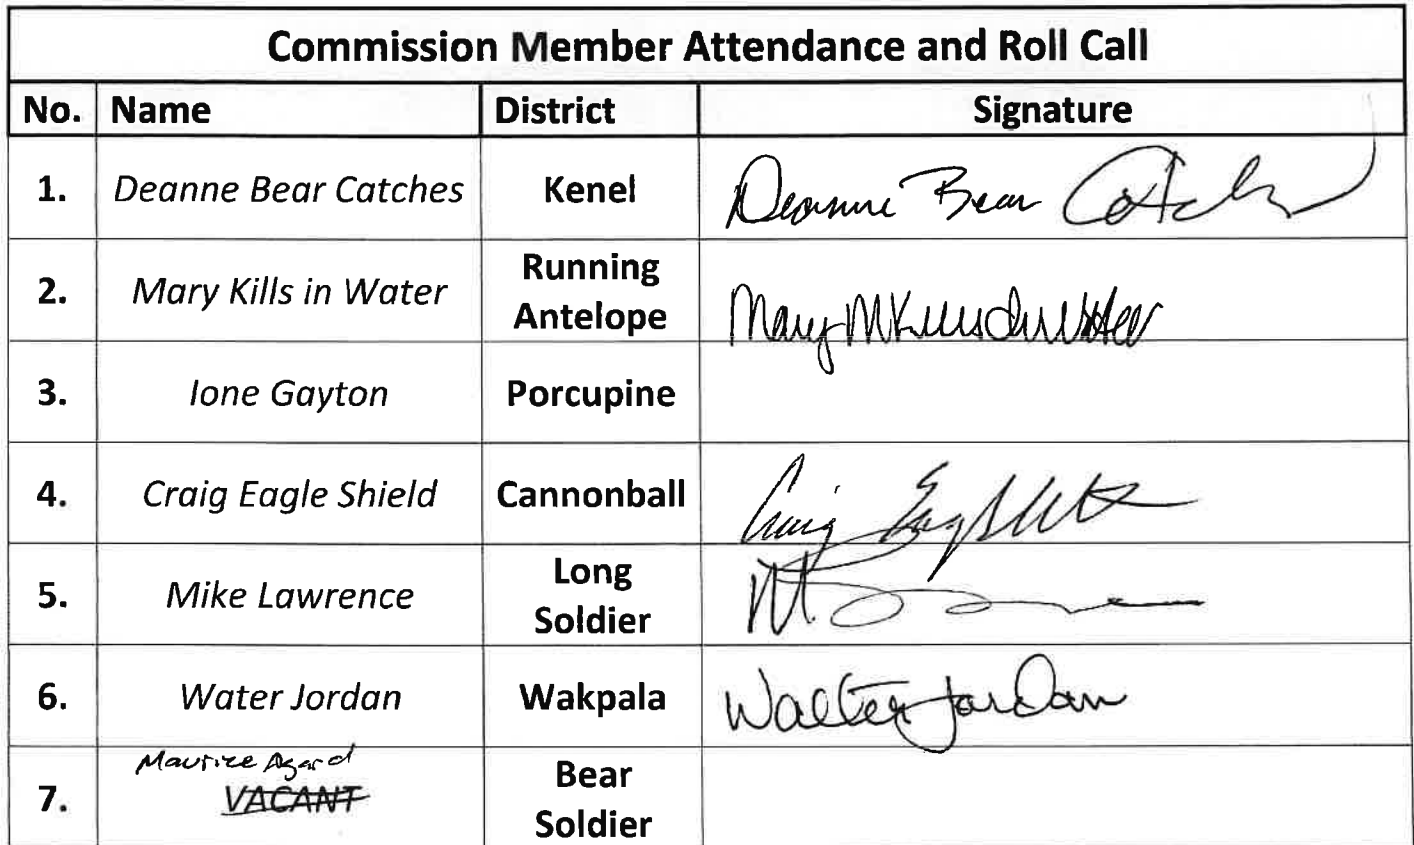 Commission Member Attendance and Roll Call
No. Name District Signature
1. Deanne Bear Catches Kenel Deanne Bear Catches
2. Mary Kills in Water Running Antelope Mary M Kills in Water
3. Ione Gayton Porcupine
4. Craig Eagle Shield Cannonball Craig Eagle Shield
5. Mike Lawrence Long Soldier M.
6. Water Jordan Wakpala Walter Jordan
Maurice Agard
7. VACANT Bear Soldier